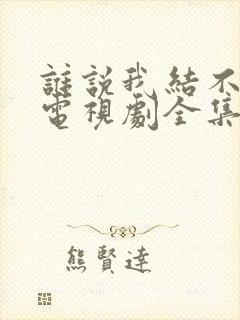 誰說我結不
電視劇全集
熊賢達